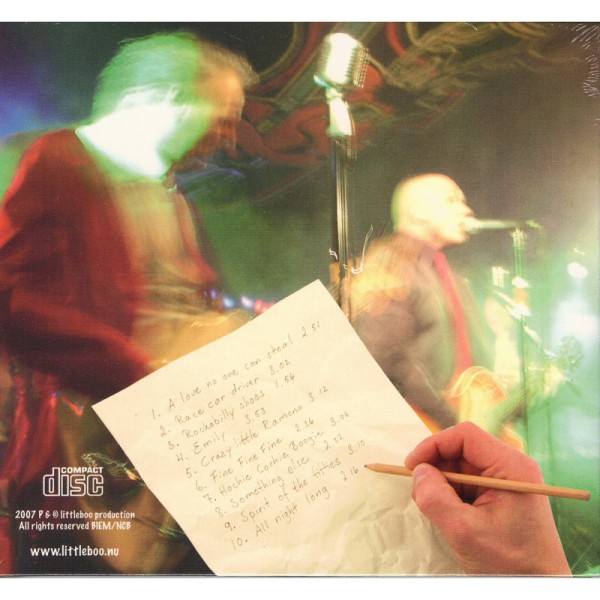 1. A love no one can steal 2.51
2. Race car driver 3.02
3. Rockabilly shoes 1.56
4. Emily 3.53
5. Crazy little Ramona 3.12
6. Fine Fine Fine 2.26
7. Hochie Cochie Boogie 3.06
8. Something else 2.22
9. Spirit of the fifties 3.10
10. All night long 2.16
COMPACT
disc
2007 P & © littleboo production
All rights reserved BIEM/NCB
www.littleboo.nu